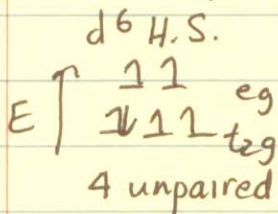 d⁶ H.S.
1 1 eg
E ↑ 1l 1 1 t₂g
4 unpaired